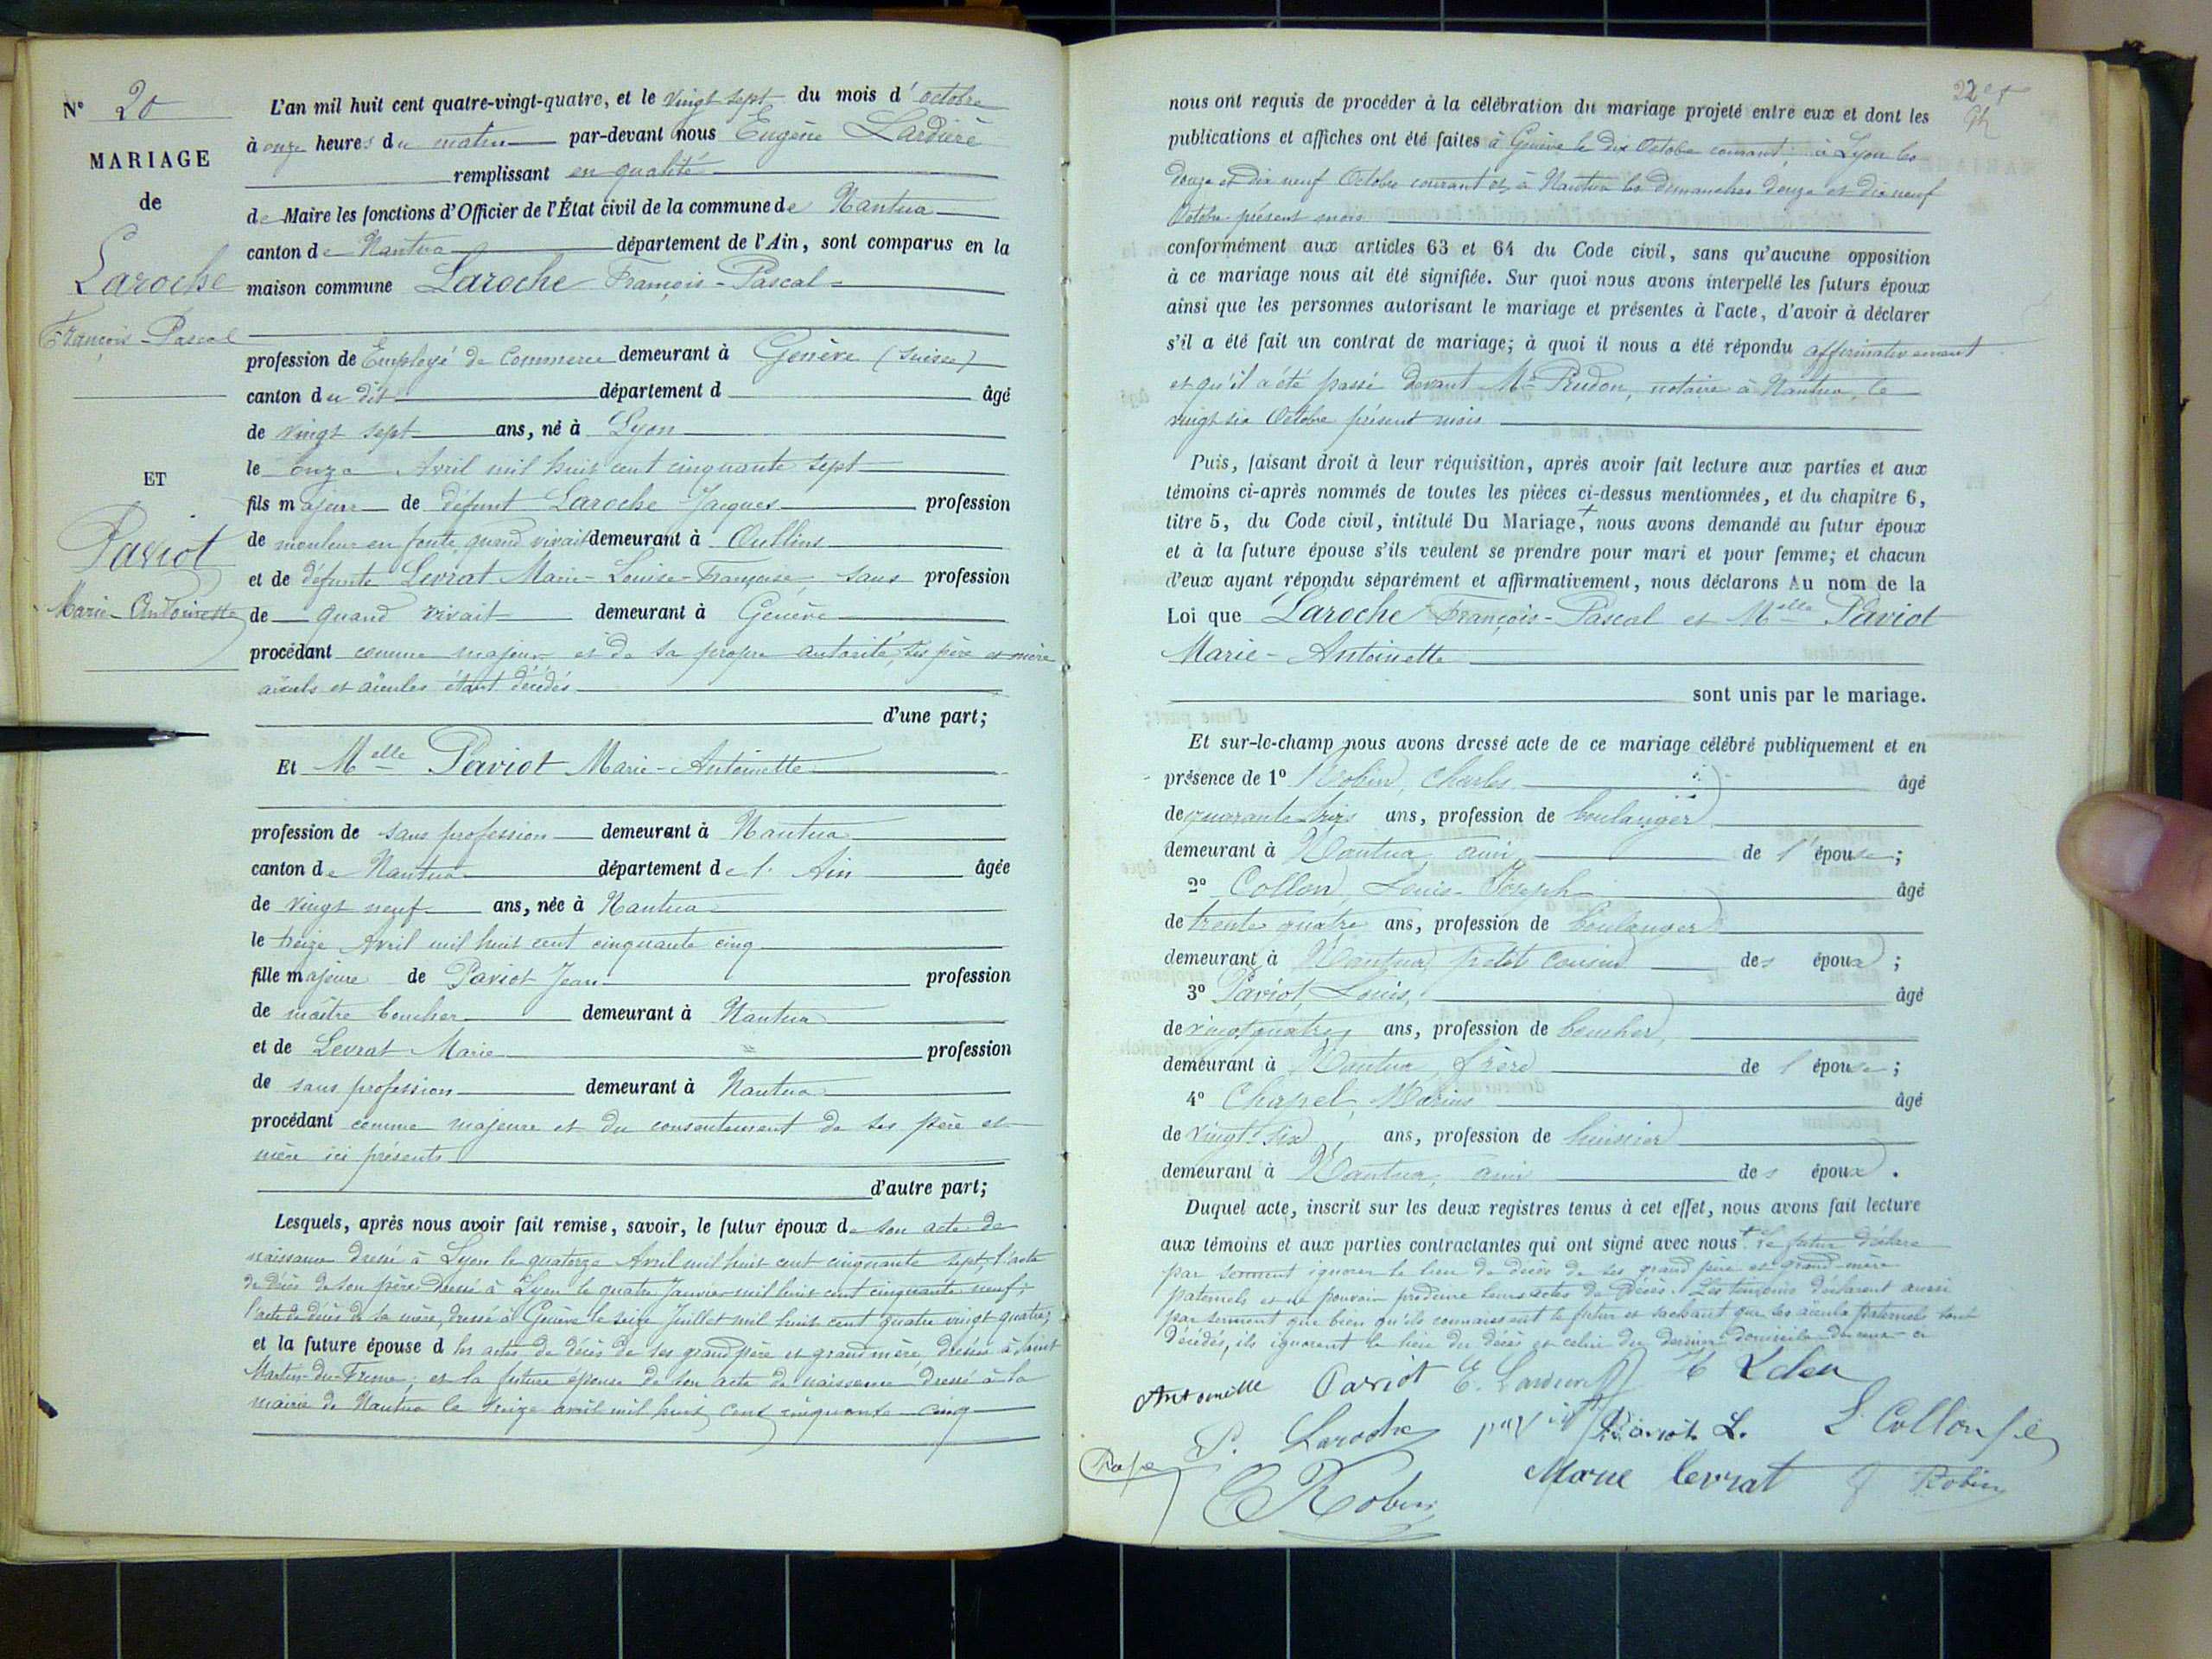 N° 20
MARIAGE
de
Laroche
François-Pascal
ET
Paviot
Marie-Antoinette
L'an mil huit cent quatre-vingt-quatre, et le vingt sept du mois d'octobre
à onze heures du matin par-devant nous Eugène Lardière
remplissant en qualité
de Maire les fonctions d'Officier de l'État civil de la commune de Nantua
canton de Nantua département de l'Ain, sont comparus en la
maison commune Laroche François-Pascal
profession de Employé de Commerce demeurant à Genève (Suisse)
canton du dit département d âgé
de vingt sept ans, né à Lyon
le onze Avril mil huit cent cinquante sept
fils majeur de défunt Laroche Jacques profession
de mouleur en fonte, quand vivait demeurant à Oullins
et de défunte Levrat Marie-Louise-Françoise sans profession
de quand vivait demeurant à Genève
procédant comme majeur et de sa propre autorité, ses père et mère
aïeuls et aïeules étant décédés
d'une part;
Et Melle Paviot Marie-Antoinette
profession de sans profession demeurant à Nantua
canton de Nantua département de l'Ain âgée
de vingt neuf ans, née à Nantua
le treize Avril mil huit cent cinquante cinq
fille majeure de Paviot Jean profession
de maître boucher demeurant à Nantua
et de Levrat Marie profession
de sans profession demeurant à Nantua
procédant comme majeure et du consentement de ses père et
mère ici présents
d'autre part;
Lesquels, après nous avoir fait remise, savoir, le futur époux de son acte de
naissance dressé à Lyon le quatorze Avril mil huit cent cinquante sept, l'acte
de décès de son père dressé à Lyon le quatre Janvier mil huit cent cinquante neuf;
l'acte de décès de sa mère, dressé à Genève le seize Juillet mil huit cent quatre vingt quatre;
et la future épouse d les actes de décès de ses grand père et grand mère, dressés à Saint
Martin-du-Frêne; et la future épouse de son acte de naissance dressé à la
mairie de Nantua le treize avril mil huit cent cinquante cinq
22
nous ont requis de procéder à la célébration du mariage projeté entre eux et dont les
publications et affiches ont été faites à Genève le dix Octobre courant; à Lyon les
douze et dix neuf Octobre courant et à Nantua les dimanches douze et dix neuf
Octobre présent mois
conformément aux articles 63 et 64 du Code civil, sans qu'aucune opposition
à ce mariage nous ait été signifiée. Sur quoi nous avons interpellé les futurs époux
ainsi que les personnes autorisant le mariage et présentes à l'acte, d'avoir à déclarer
s'il a été fait un contrat de mariage; à quoi il nous a été répondu affirmativement
et qu'il a été passé devant Me Prudon, notaire à Nantua, le
vingt six Octobre présent mois
Puis, faisant droit à leur réquisition, après avoir fait lecture aux parties et aux
témoins ci-après nommés de toutes les pièces ci-dessus mentionnées, et du chapitre 6,
titre 5, du Code civil, intitulé Du Mariage,+ nous avons demandé au futur époux
et à la future épouse s'ils veulent se prendre pour mari et pour femme; et chacun
d'eux ayant répondu séparément et affirmativement, nous déclarons Au nom de la
Loi que Laroche François-Pascal et Melle Paviot
Marie-Antoinette
sont unis par le mariage.
Et sur-le-champ nous avons dressé acte de ce mariage célébré publiquement et en
présence de 1° Robin, Charles âgé
de quarante trois ans, profession de boulanger
demeurant à Nantua, ami de l'épouse;
2° Collon, Louis-Joseph âgé
de trente quatre ans, profession de boulanger
demeurant à Nantua petit cousin des époux;
3° Paviot, Louis, âgé
de vingt quatre ans, profession de boucher,
demeurant à Nantua frère de l'épouse;
4° Chapel, Marius âgé
de vingt six, ans, profession de huissier
demeurant à Nantua, ami des époux.
Duquel acte, inscrit sur les deux registres tenus à cet effet, nous avons fait lecture
aux témoins et aux parties contractantes qui ont signé avec nous + le futur déclare
par serment ignorer le lieu de décès de ses grand père et grand-mère
paternels et ne pouvoir produire leurs actes de décès. Les témoins déclarent aussi
par serment que bien qu'ils connaissent le futur et sachant que ses aïeuls paternels sont
décédés, ils ignorent le lieu du décès et celui du dernier domicile de ceux-ci
Antoinette Paviot E. Lardière
P. Laroche Paviot L. L. Collon
C Robin Marie levrat J Robin